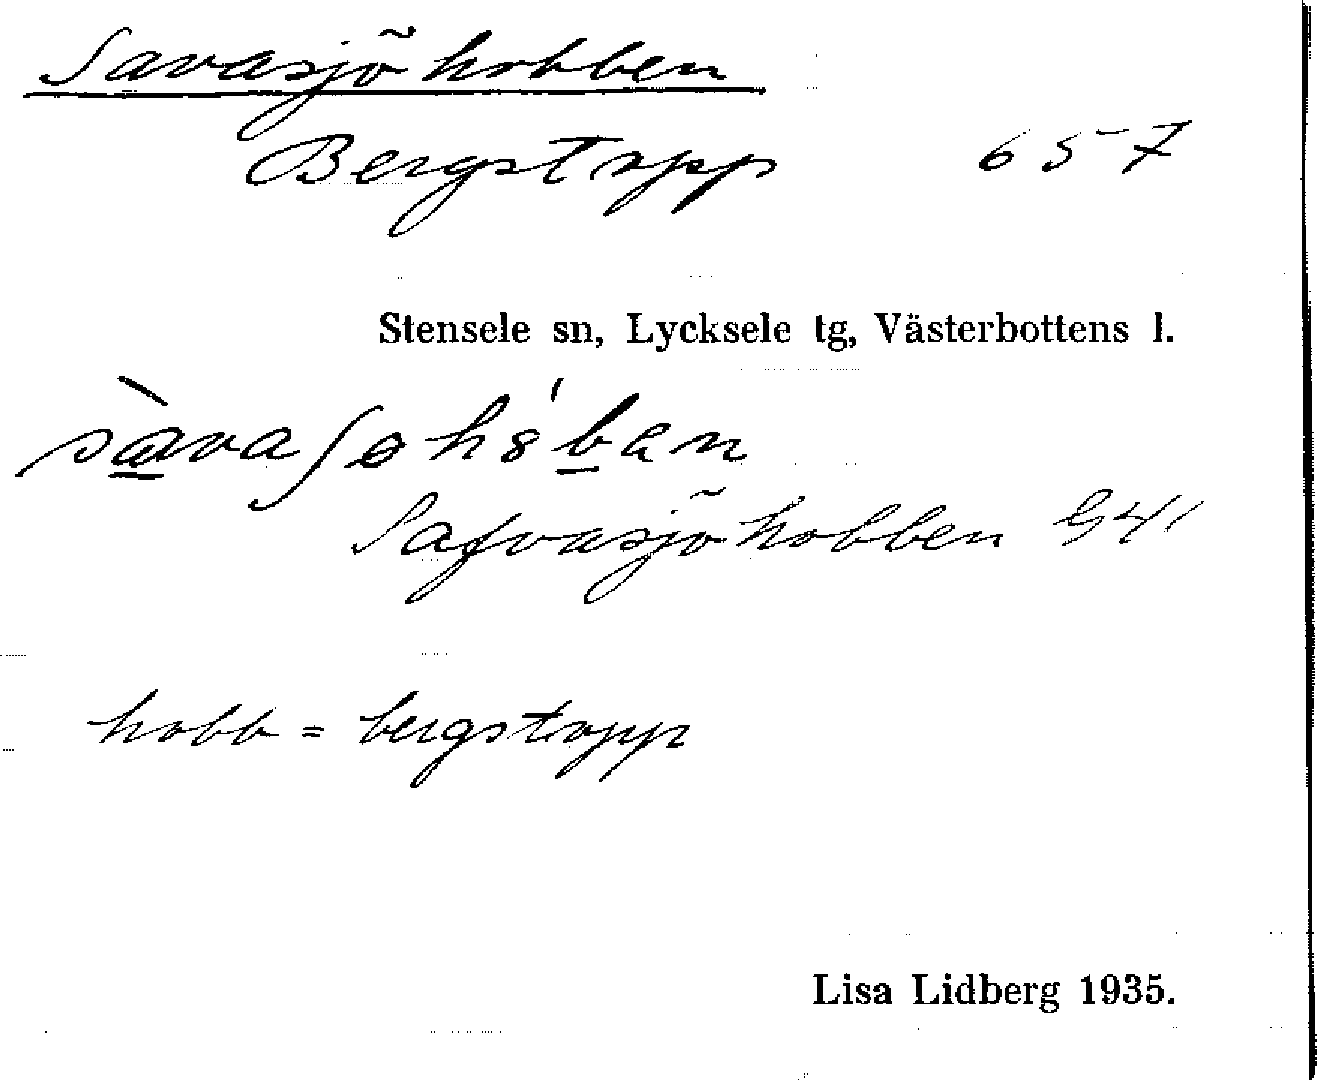 Savasjöhobben
Bergstopp 657
Stensele sn, Lycksele tg, Västerbottens l.
Safvasjöhobben G41
hobb = bergstopp
Lisa Lidberg 1935.